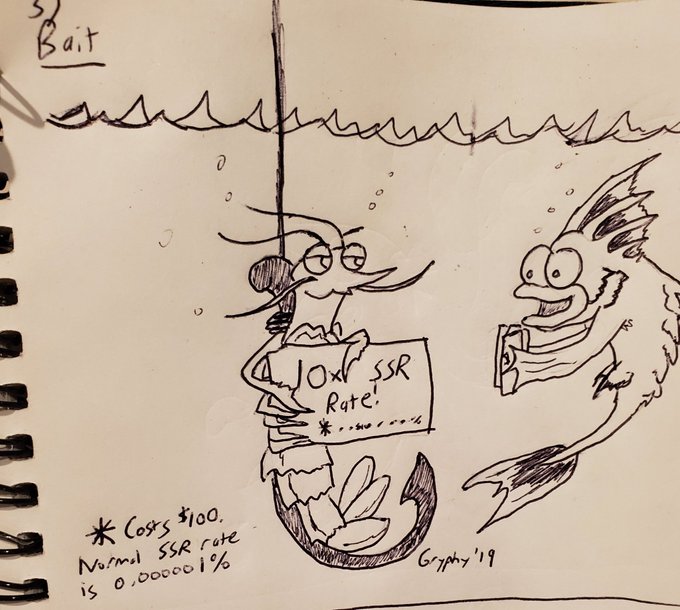 5)
Bait
10x SSR
Rate!
* Costs $100.
Normal SSR rate
is 0.000001%
Gryphy '19